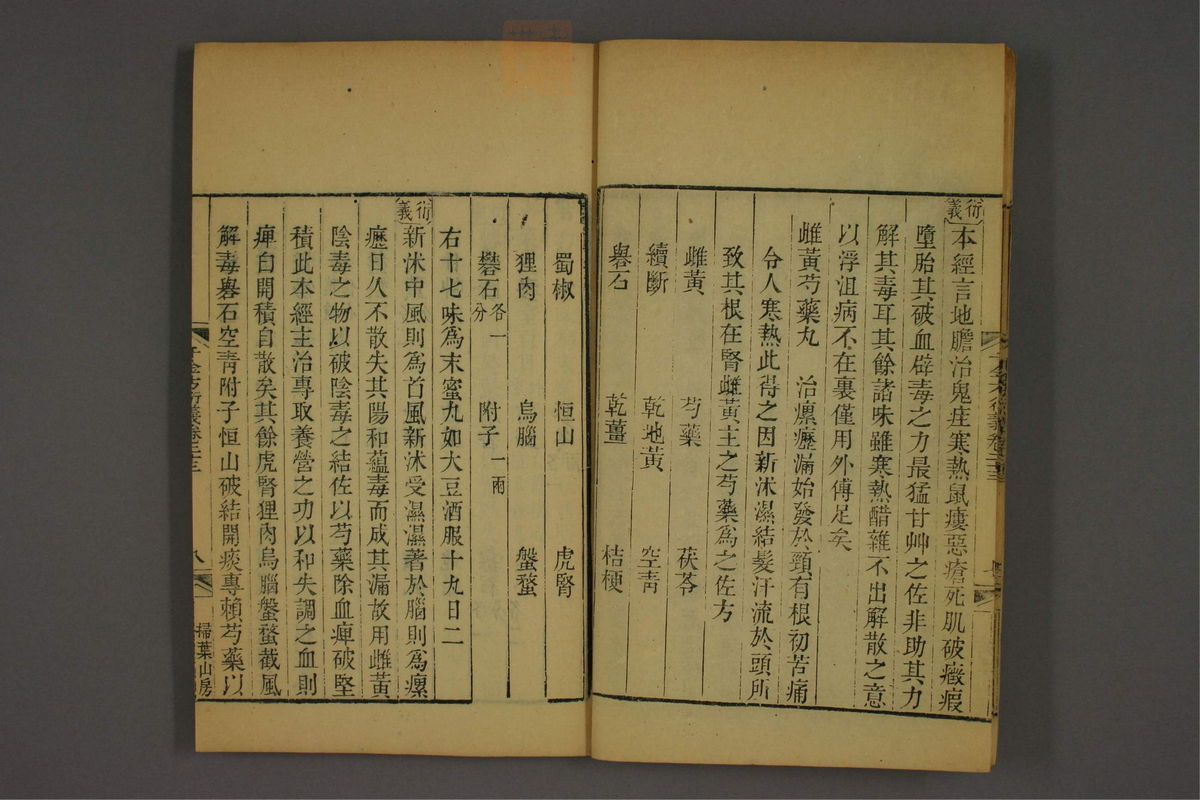 衍義本經言地膽治鬼疰寒熱鼠瘻惡瘡死肌破癥瘕
墮胎其破血辟毒之力最猛甘艸之佐非助其力
解其毒耳其餘諸味雖寒熱醋雜不出解散之意
以浮沮病不在裏僅用外傅足矣
雌黃芍藥丸 治瘰癧漏始發於頸有根初苦痛
令人寒熱此得之因新沐濕結髮汗流於頭所
致其根在腎雌黃主之芍藥爲之佐方
雌黃 芍藥 茯苓
續斷 乾地黃 空靑
礜石 乾薑 桔梗
蜀椒 恒山 虎腎
狸肉 烏腦 盤蝥
礬石各一分 附子一兩
右十七味爲末蜜丸如大豆酒服十丸日二
衍義新沐中風則爲首風新沐受濕濕著於腦則爲瘰
癧日久不散失其陽和蘊毒而成其漏故用雌黃
陰毒之物以破陰毒之結佐以芍藥除血痺破堅
積此本經主治專取養營之功以和失調之血則
痺自開積自散矣其餘虎腎狸肉烏腦盤蝥截風
解毒礜石空靑附子恒山破結開痰專賴芍藥以
千金方衍義卷二十三 八 掃葉山房